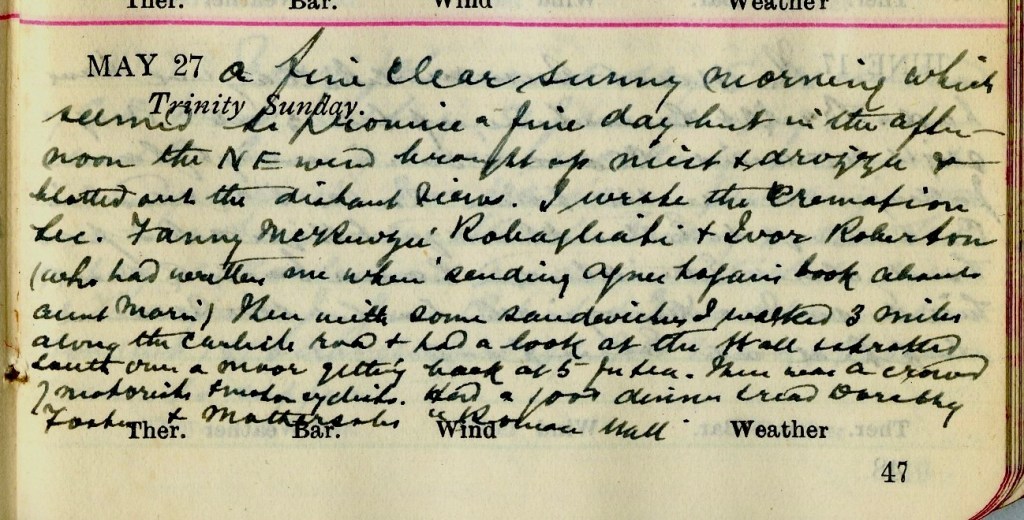 Ther. Bar. Wind Weather
MAY 27 a fine clear sunny morning which
Trinity Sunday.
seemed to promise a fine day but in the after-
noon the NE wind brought up mist & drizzle &
blotted out the distant views. I wrote the Cremation
Sec. Fanny McKenzie Rabagliati & Ivor Roberton
(who had written me when sending Agnes book about
aunt Maris) Then with some sandwiches I walked 3 miles
along the Carlisle road & had a look at the Wall &
south over a moor getting back at 5 for tea. There was a crowd
of motorists & motor cyclists. Had a good dinner & read Dorothy
& Mothersole's "Roman Wall"
Ther. Bar. Wind Weather
47